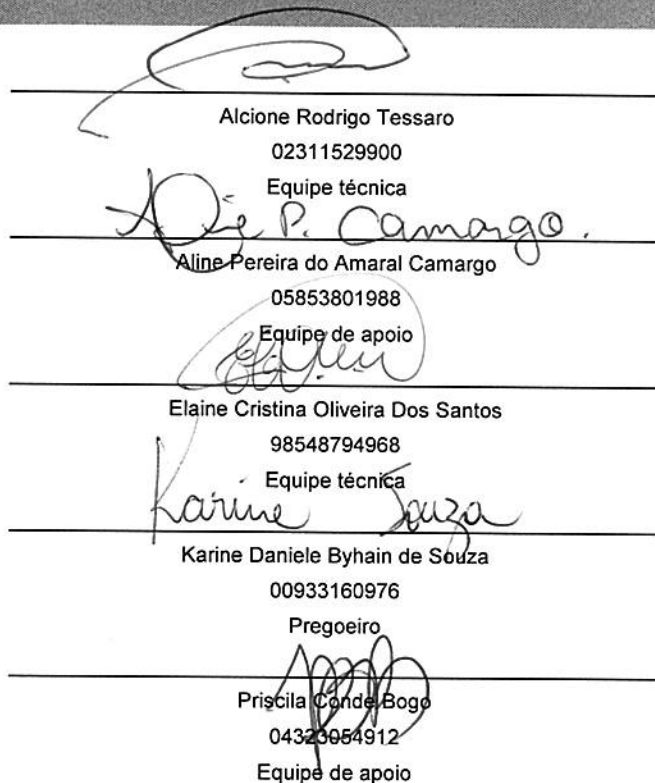 Alcione Rodrigo Tessaro
02311529900
Equipe técnica
Aline P. Camargo.
Aline Pereira do Amaral Camargo
05853801988
Equipe de apoio
Elaine Cristina Oliveira Dos Santos
98548794968
Equipe técnica
Karine Souza
Karine Daniele Byhain de Souza
00933160976
Pregoeiro
Priscila Conde Bogo
04323054912
Equipe de apoio